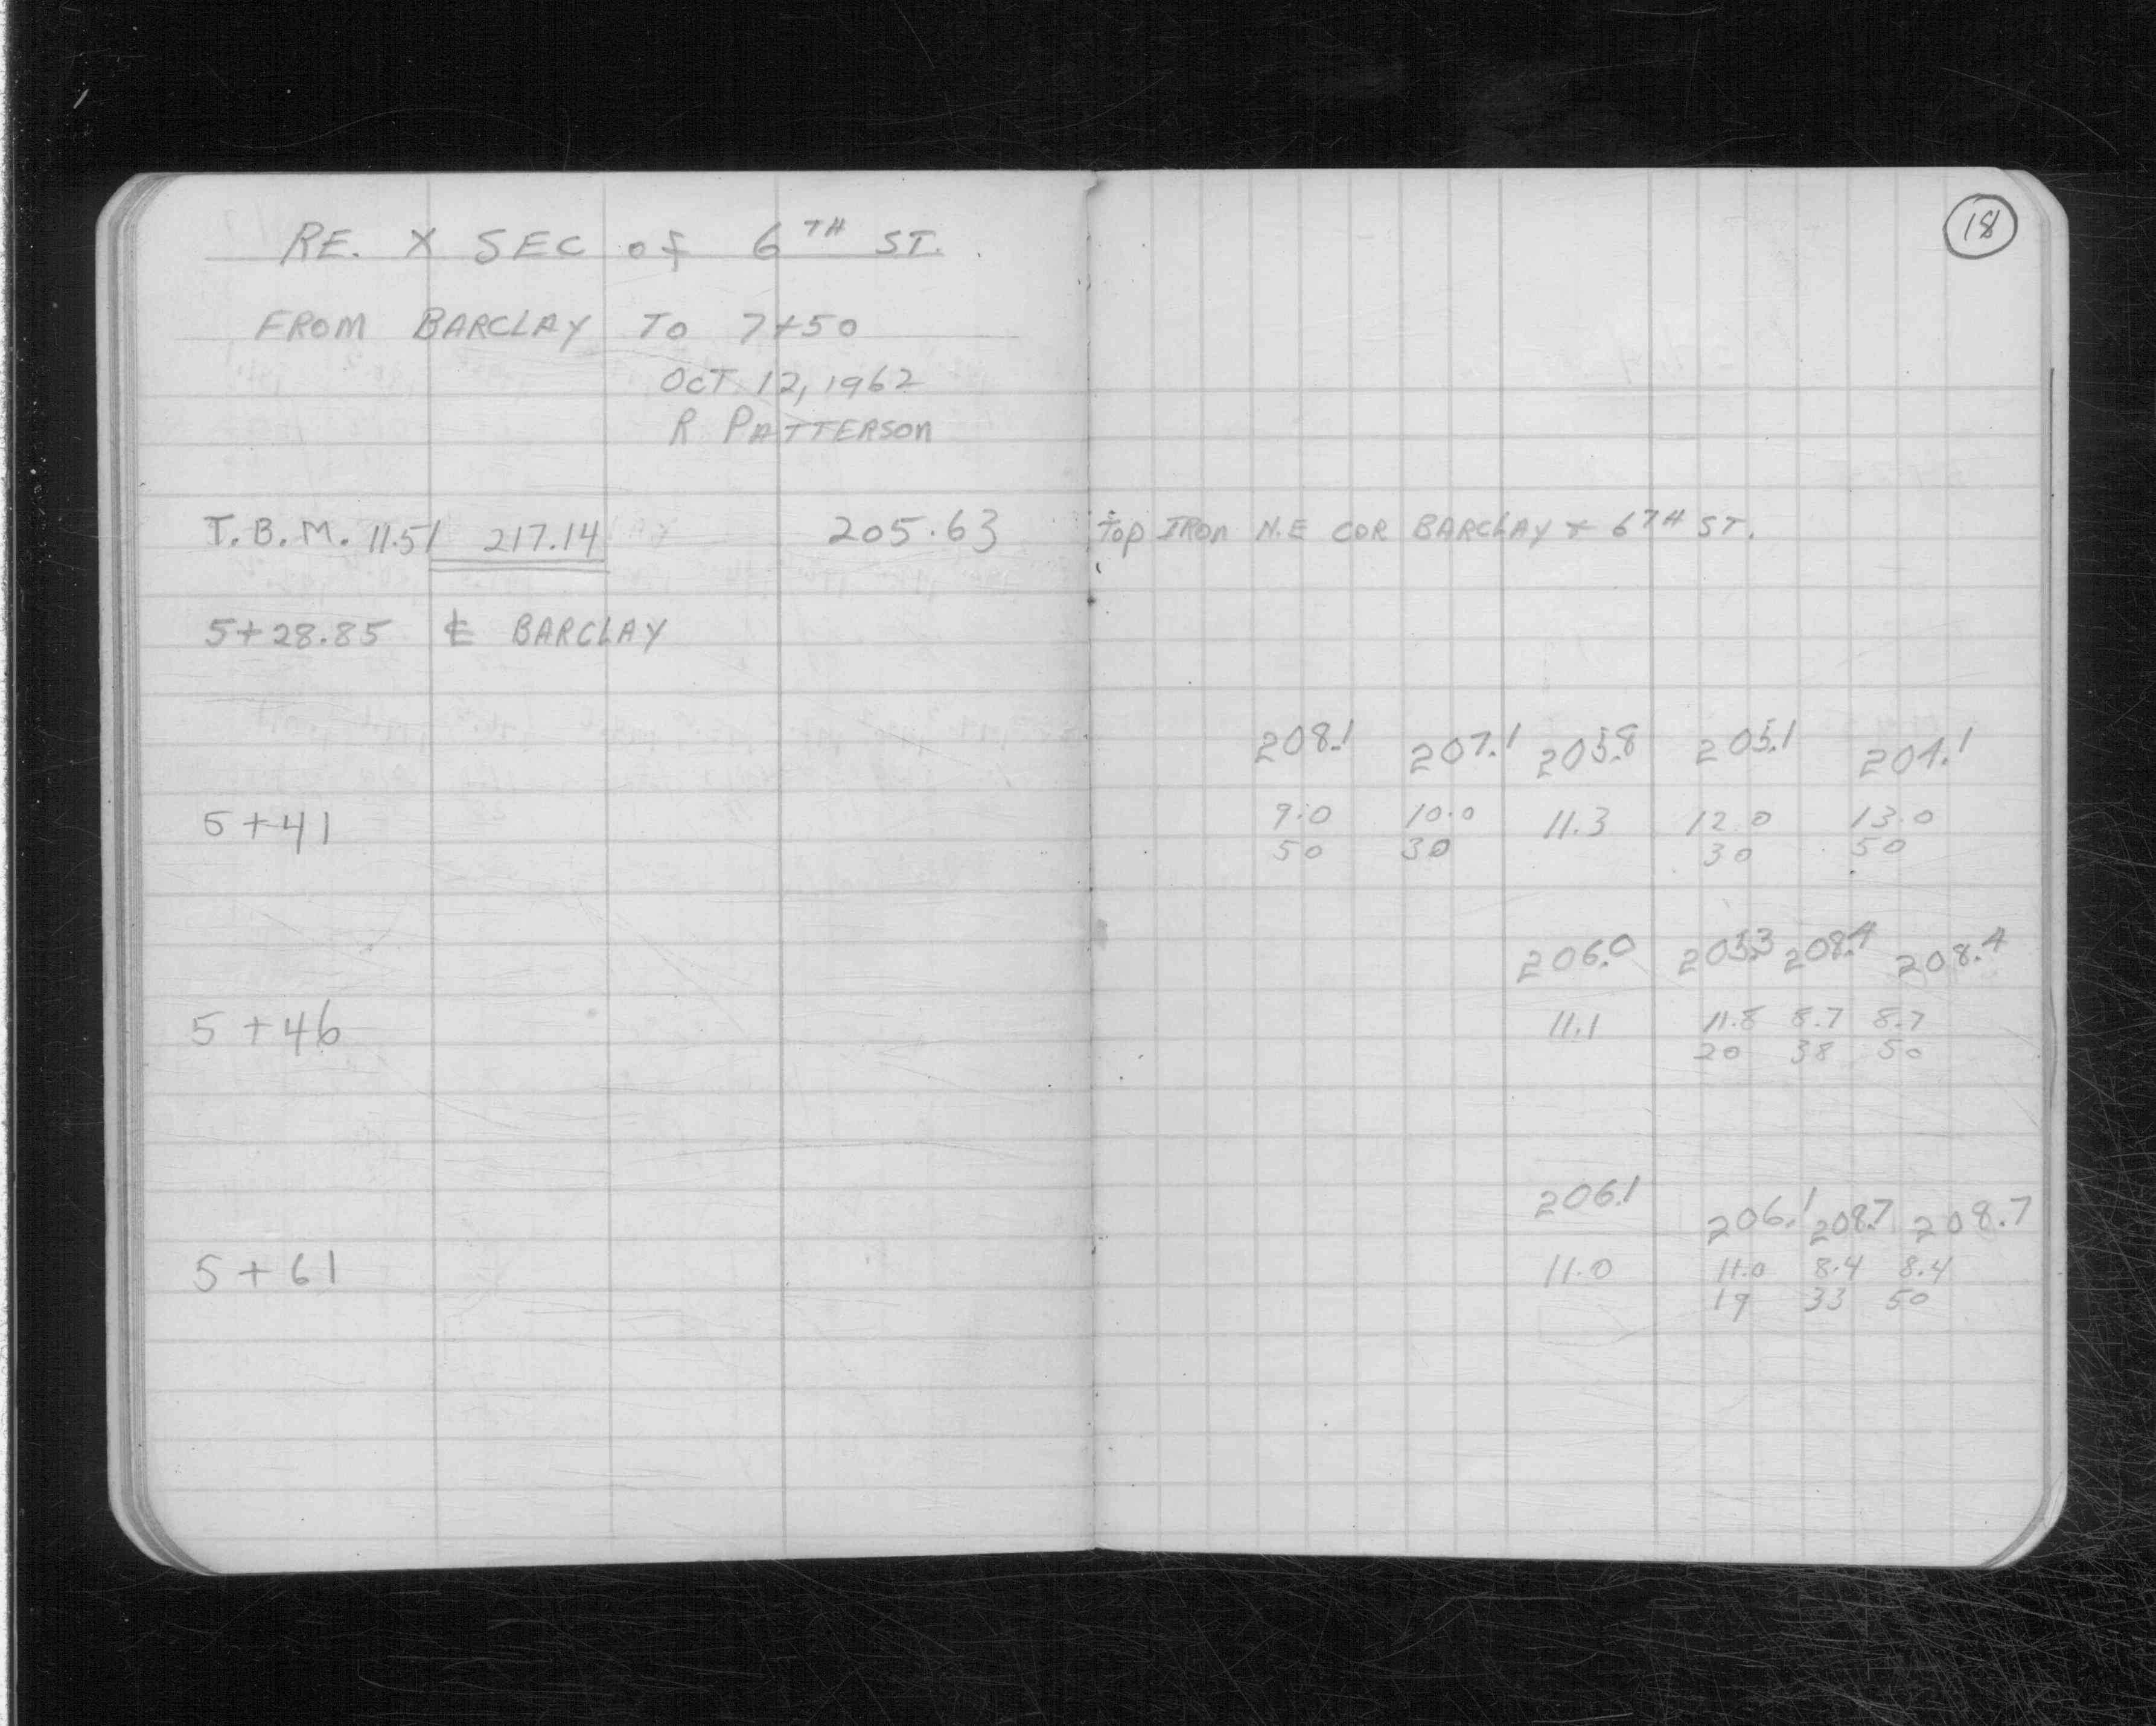 RE. X SEC of 6TH ST.
FROM BARCLAY TO 7+50
OCT 12, 1962
R PATTERSON
T.B.M. 11.51 217.14 205.63
5+28.85 ℄ BARCLAY
5+41
5+46
5+61
18
Top IRon N.E COR BARCLAY + 6TH ST.
208.1 207.1 205.8 205.1 204.1
9.0 10.0 11.3 12.0 13.0
50 30 30 50
206.0 205.3 208.4 208.4
11.1 11.8 8.7 8.7
20 38 50
206.1 206.1 208.7 208.7
11.0 11.0 8.4 8.4
19 33 50